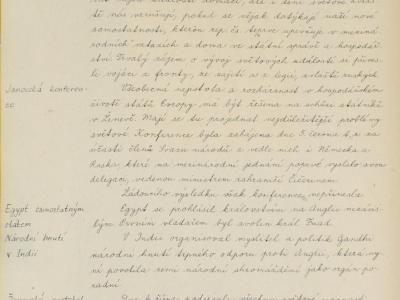 nás vzrušují, pokud se nějak dotýkají naší nové
samostatnosti, kterou rep. čs. teprve upevňuje v meziná-
rodních vztazích a doma ve státní správě a hospodář-
ství. Trvalý zájem o vývoj světových událostí si přines-
li vojáci z fronty, ze zajetí a z legií, zvláště ruských.
Janovská konferen-
ce
Všeobecná nejistota a rozháranost v hospodářském
životě států Evropy má být řešena na schůzi státníků
v Ženevě. Mají se tu projednat nejdůležitější problémy
světové. Konference byla zahájena dne 5. června t.r. za
účasti členů Svazu národů a vedle nich i Německa a
Ruska, které na mezinárodní jednání poprvé vyslalo svou
delegaci, vedenou ministrem zahraničí Čičerinem.
Žádoucího výsledku však konference nepřinesla.
Egypt samostatným
státem
Egypt se prohlásil královstvím na Anglii nezávis-
lým. Prvním vladařem byl zvolen král Fuad.
Národní hnutí
v Indii
V Indii organisoval myslitel a politik Gandhi
národní hnutí trpného odporu proti Anglii, která vy-
ní povolila zemi národní shromáždění jako orgán po-
radní.